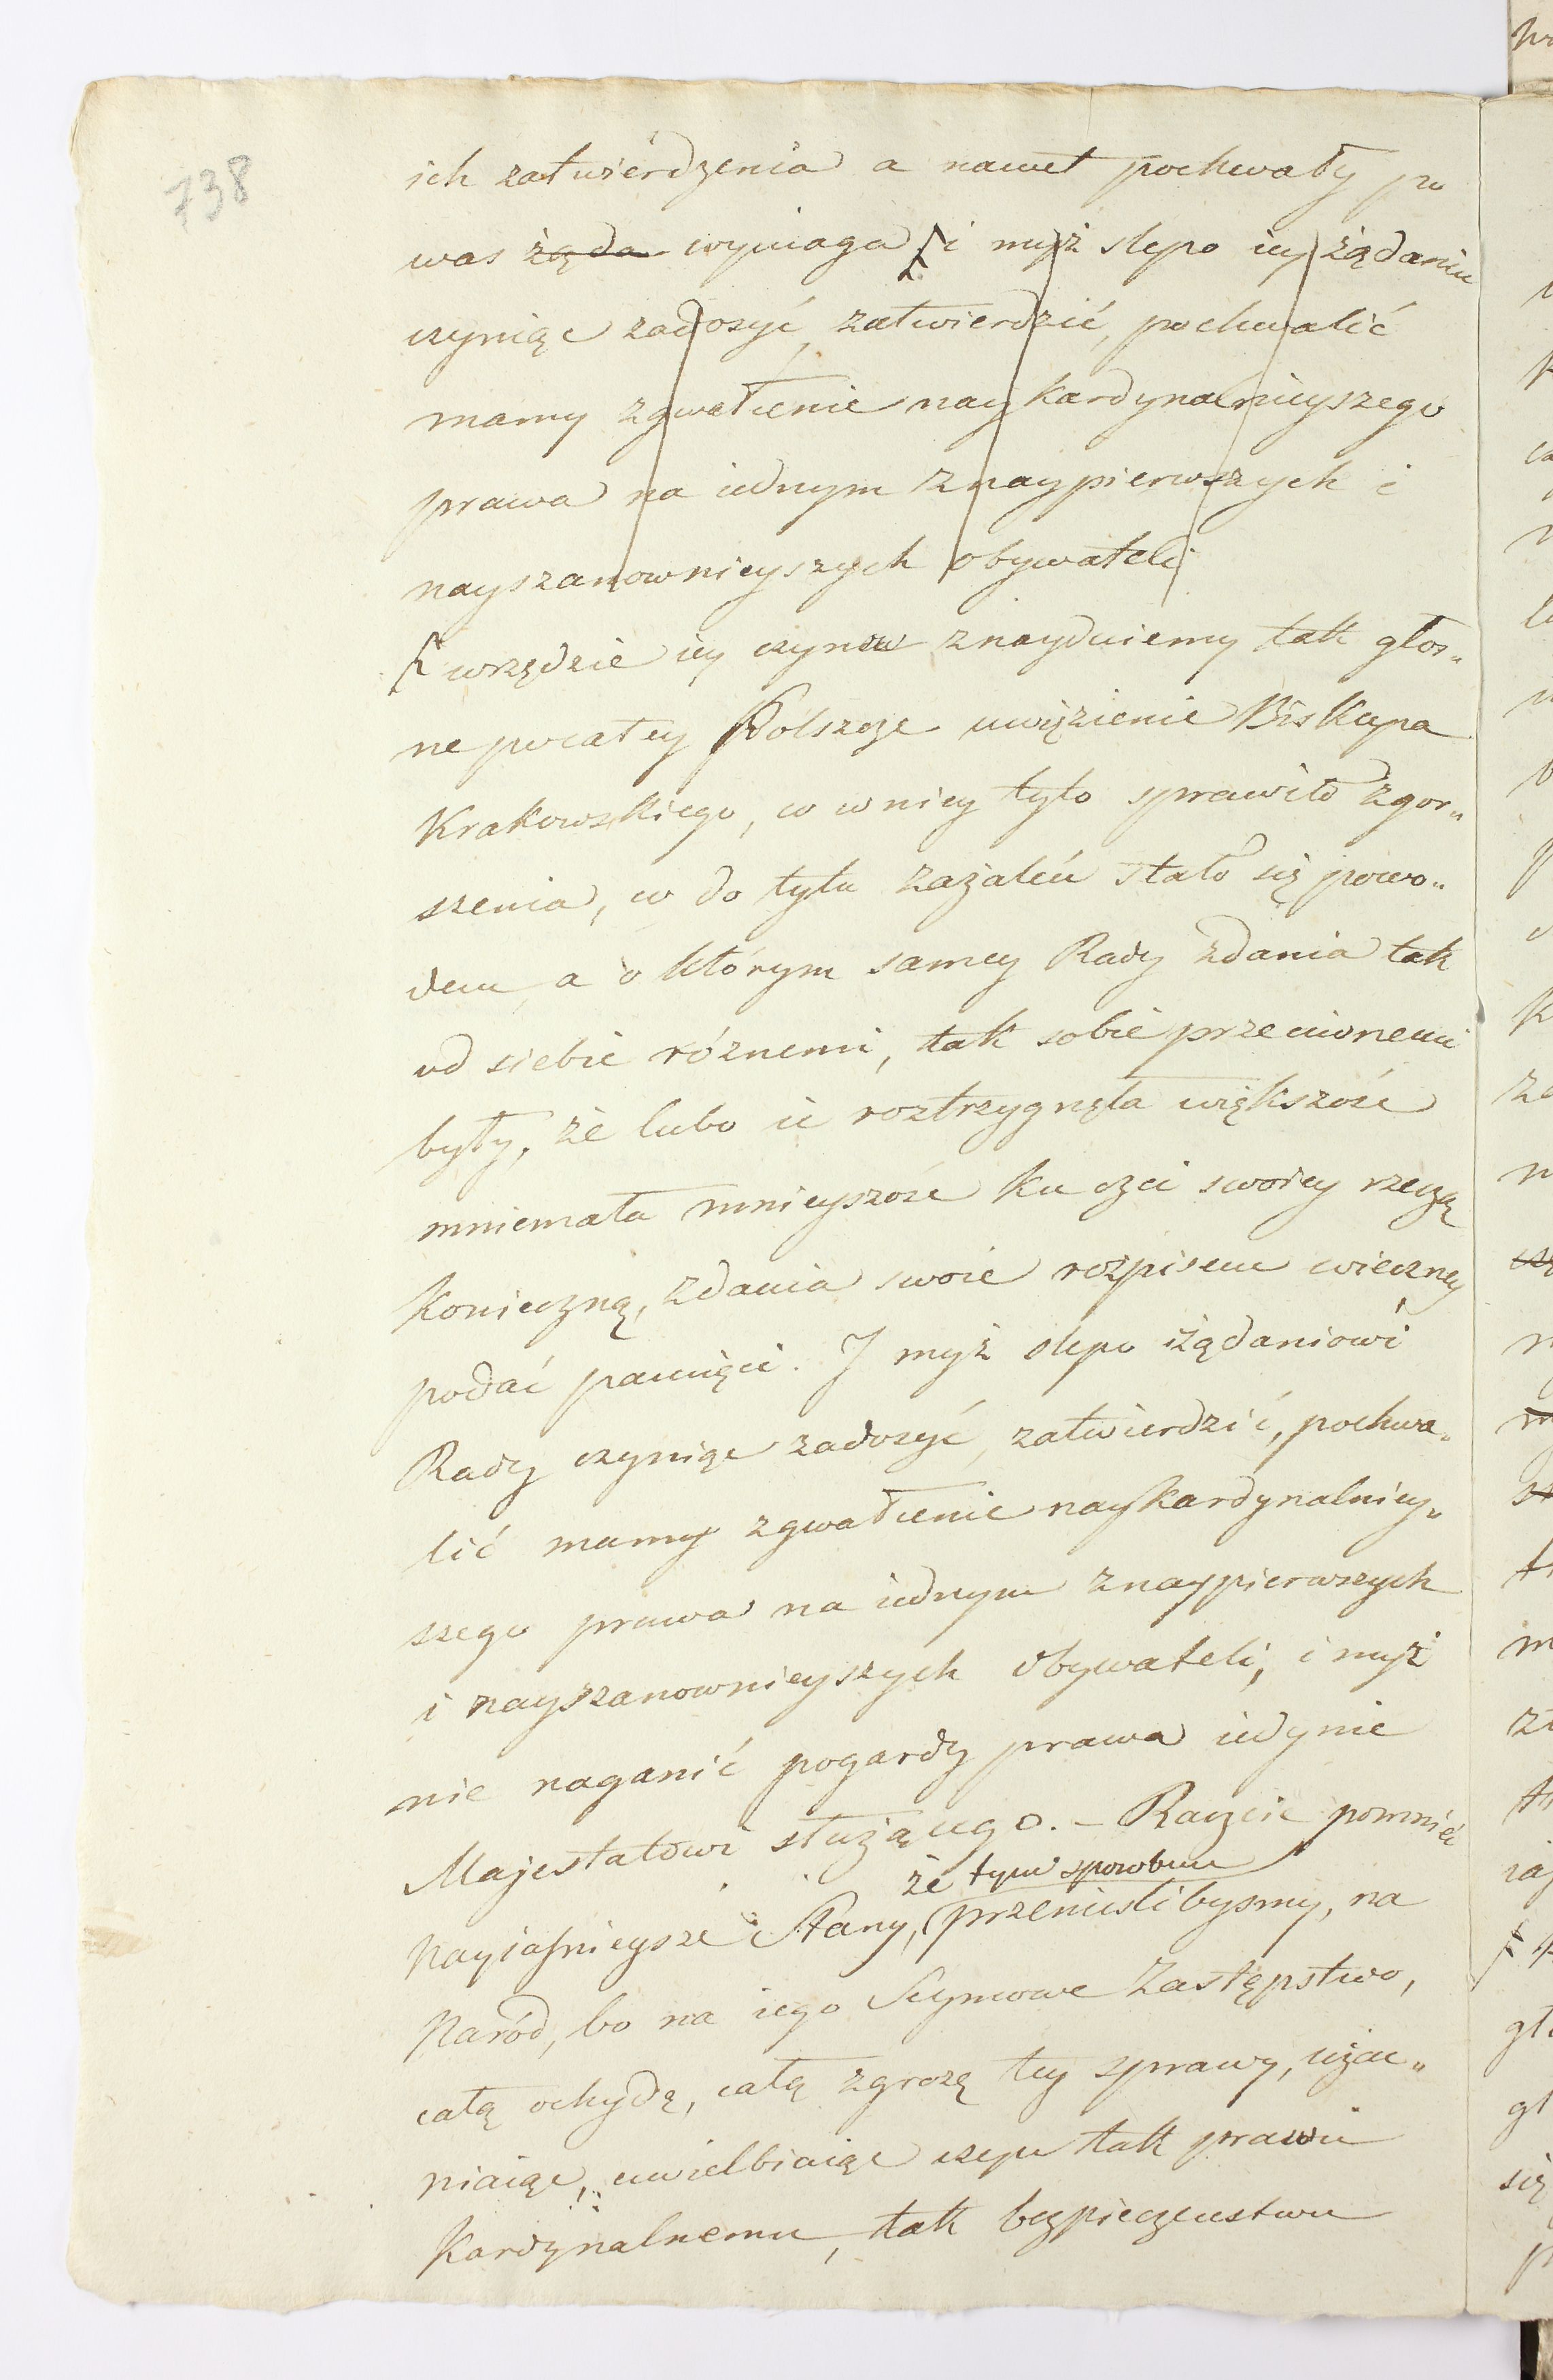 738
ich zatwierdzenia a nawet pochwały po
was żąda wymaga i myż slepo iey żądaniu
czyniąc zadosyć, zatwierdzić, pochwalić
mamy zgwałcenie naykardynalnieyszego
prawa na iednym z naypierwszych i
nayszanownieyszych obywateli
w rzędzie iey czynow znayduiemy tak głos„
ne po całey Polszcze uwięzienie Biskupa
Krakowskiego, co w niey tyło sprawiło zgor„
szenia, co do tylu zażaleń stało się powo„
dem, a o którym samey Rady zdania tak
od siebie róznemi, tak sobie przeciwnemi
były, że lubo ie roztrzygnęła większość
mniemała mnieyszość ku czci swoiey rzeczą
konieczną, zdania swoie rozpisem wieczney
podać pamięci. J myż slepo żądaniowi
Rady czyniąc zadosyć, zatwierdzić, pochwa„
lić mamy zgwałcenie naykardynalniey„
szego prawa na iednym z naypierwszych
i nayszanownieyszych obywateli, i myż
nie naganić pogardy prawa iedynie
Majestatowi służącego. – Raczcie pomnieć
że tym sposobem
Nayiaśnieysze Stany, przenieslibysmy, na
Naród, bo na iego Seymowe Zastępstwo,
całą ochydę, całą zgrozę tey sprawy, uzac„
niaiąc, uwielbiaiąc czyn tak prawu
Kardynalnemu, tak bezpieczenstwu